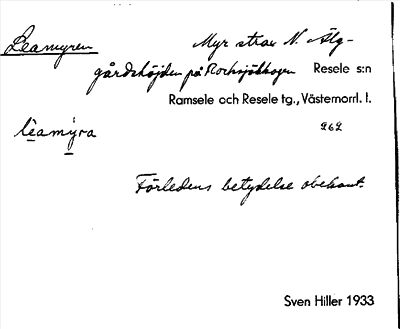 Leamyren Myr strax N. Älg-
gårdshöjden på Rocksjöskogen Resele s:n
Ramsele och Resele tg., Västernorrl. l.
lèamýra 262
Förledens betydelse obekant.
Sven Hiller 1933